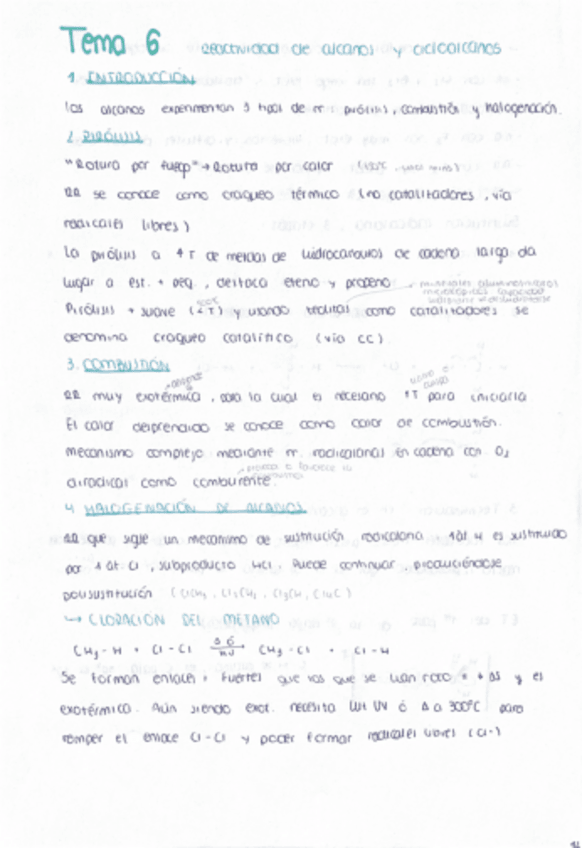 Tema 6 reactividad de alcanos y cicloalcanos
1. INTRODUCCIÓN
Los alcanos experimentan 3 tipos de rr: pirólisis, combustión y halogenación.
2. PIRÓLISIS
"Rotura por fuego" → Rotura por calor
RR se conoce como craqueo térmico (no catalizadores, vía
radicales libres)
La pirólisis a ↑T de mezclas de hidrocarburos de cadena larga da
lugar a est. + peq., destaca eteno y propeno
Pirólisis + suave (↓T) y usando zeolitas como catalizadores se
denomina craqueo catalítico (vía CC)
3. COMBUSTIÓN
RR muy exotérmica, para la cual es necesario ↑T para iniciarla
El calor desprendido se conoce como calor de combustión.
mecanismo complejo mediante rr. radicalarias en cadena con O2
diradical como comburente.
4. HALOGENACIÓN DE ALCANOS
RR que sigue un mecanismo de sustitución radicalaria. 1 át. H es sustituido
por 1 át Cl, subproducto HCl. Puede continuar produciéndose
polisustitución
→ CLORACIÓN DEL METANO
CH3-H + Cl-Cl Δ ó hν → CH3-Cl + Cl-H
Se forman enlaces + fuertes que los que se han roto + ΔS y es
exotérmico. Aún siendo exot. necesita luz UV ó Δ a 300°C para
romper el enlace Cl-Cl y poder formar radicales libres (Cl·)